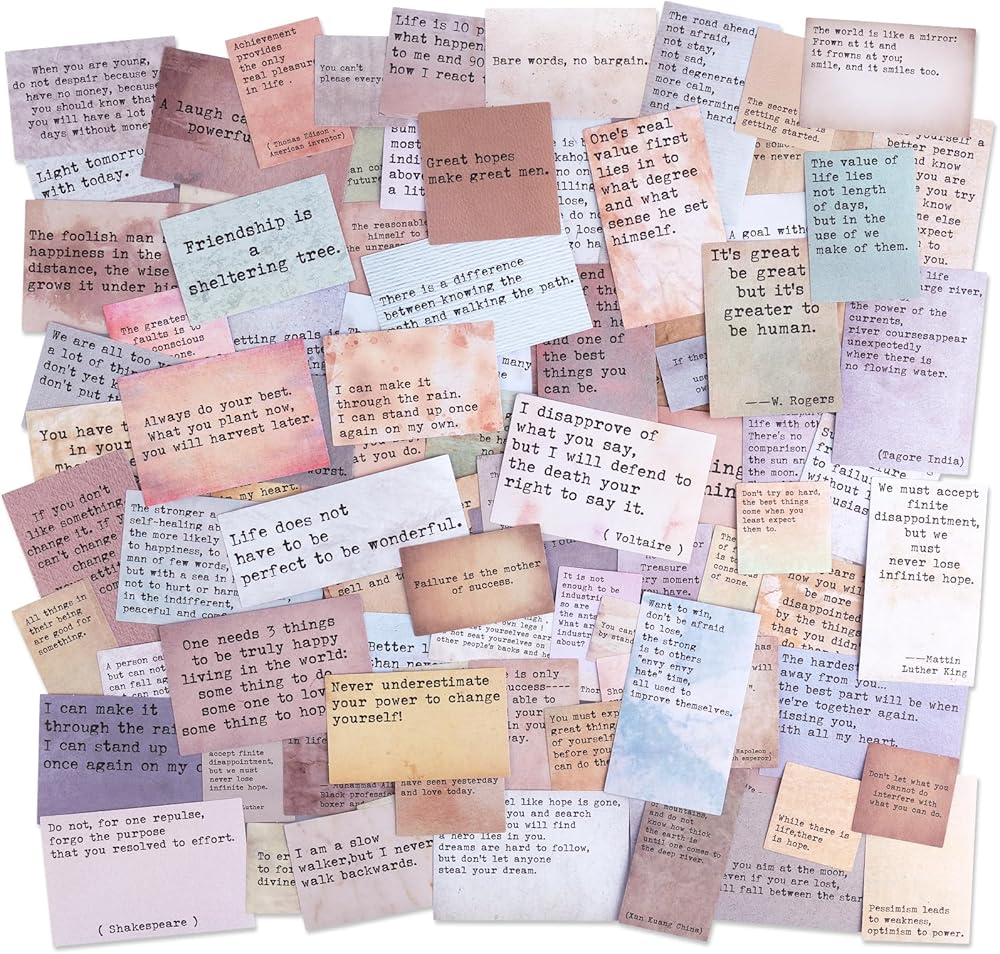 When you are young,
do not despair because y
have no money, because
you should know that
you will have a lot
days without mone
Light tomorro
with today.
A laugh ca
powerfu
Achievement
provides
the only
real pleasur
in life .
( Thomas Edison .
American inventor)
You can't
please every
Life is 10 p
what happen
to me and 90
how I react t
Bare words, no bargain.
The road ahead,
not afraid,
not stay,
not sad,
not degenerate
more calm,
more determine
and hard.
The secret
getting ahead is
getting started.
The world is like a mirror:
Frown at it and
it frowns at you;
smile, and it smiles too.
yourself a
better person
and know
you are
you try
know
ne else
expect
to
you.
The foolish man s
happiness in the
distance, the wise
grows it under his
Friendship is
a
sheltering tree.
The reasonable
himself to
the unreas
sum
most
indi
above
a lit
Great hopes
make great men.
One's real
value first
lies in to
what degree
and what
sense he set
himself.
A goal with
The value of
life lies
not length
of days,
but in the
use of we
make of them.
It's great
be great
but it's
greater to
be human.
——W. Rogers
life
urge river,
the power of the
currents,
river coursesappear
unexpectedly
where there is
no flowing water.
(Tagore India)
There is a difference
between knowing the
path and walking the path.
The greatest
faults is to
conscious
none.
etting goals is
We are all too
a lot of thin
don't yet k
don't put t
and one of
the best
things you
can be.
many
If the
use
ow
Always do your best.
What you plant now,
you will harvest later.
I can make it
through the rain.
I can stand up once
again on my own.
You have t
in your
Th
t you do.
orst.
my heart.
I disapprove of
what you say,
but I will defend to
the death your
right to say it.
( Voltaire )
life with oth
There's no
comparison
the sun an
the moon.
to failure
without l
Don't try so hard,
the best things
come when you
least expect
them to.
We must accept
finite
disappointment,
but we
must
never lose
infinite hope.
———Mattin
Luther King
If you don't
like something
change it. If y
can't change
The stronger a
self-healing ab
the more likely
to happiness, to
man of few words,
but with a sea in
not to hurt or harm
in the indifferent,
peaceful and com
Life does not
have to be
perfect to be wonderful.
Failure is the mother
of success.
sell and to
The
of f
is to
consc
of none.
It is not
enough to be
industri
so are
the ants
What ar
industr
about?
Treasure
ry moment
You can'
by stand
ears
now you wil
be more
disappointed
by the things
that you didn'
All things in
their being
are good for
something.
A person ca
but can not
can fall ag
can not
One needs 3 things
to be truly happy
living in the world:
some thing to do
some one to lov
some thing to hop
Better l
than never
own legs !
not seat yourselves on
other people's backs and h
Want to win,
don't be afraid
to lose,
the strong
is to others
"envy envy
hate" time,
all used to
improve themselves.
The hardest
away from you...
the best part will be when
we're together again.
Missing you,
with all my heart.
Never underestimate
your power to change
yourself!
is only
uccess----
able to
You must exp
great thing
of yourself
before you
can do the
Napoleon
h emperor)
I can make it
through the rai
I can stand up
once again on my o
accept finite
disappointment,
but we must
never lose
infinite hope.
uther
in life
Muhammad Al
Black professio
boxer and
have seen yesterday
and love today.
Don't let what you
cannot do
interfere with
what you can do.
While there is
life,there
is hope.
Do not, for one repulse,
forgo the purpose
that you resolved to effort.
( Shakespeare )
To er
to fo
divine
I am a slow
walker,but I never
walk backwards.
eel like hope is gone,
you and search
u will find
a hero lies in you.
dreams are hard to follow,
but don't let anyone
steal your dream.
of mountains,
and do not
know, how thick
the earth is
until one comes to
the deep river.
(Xun Kuang China)
you aim at the moon,
even if you are lost,
ll fall between the star
Pessimism leads
to weakness,
optimism to power.